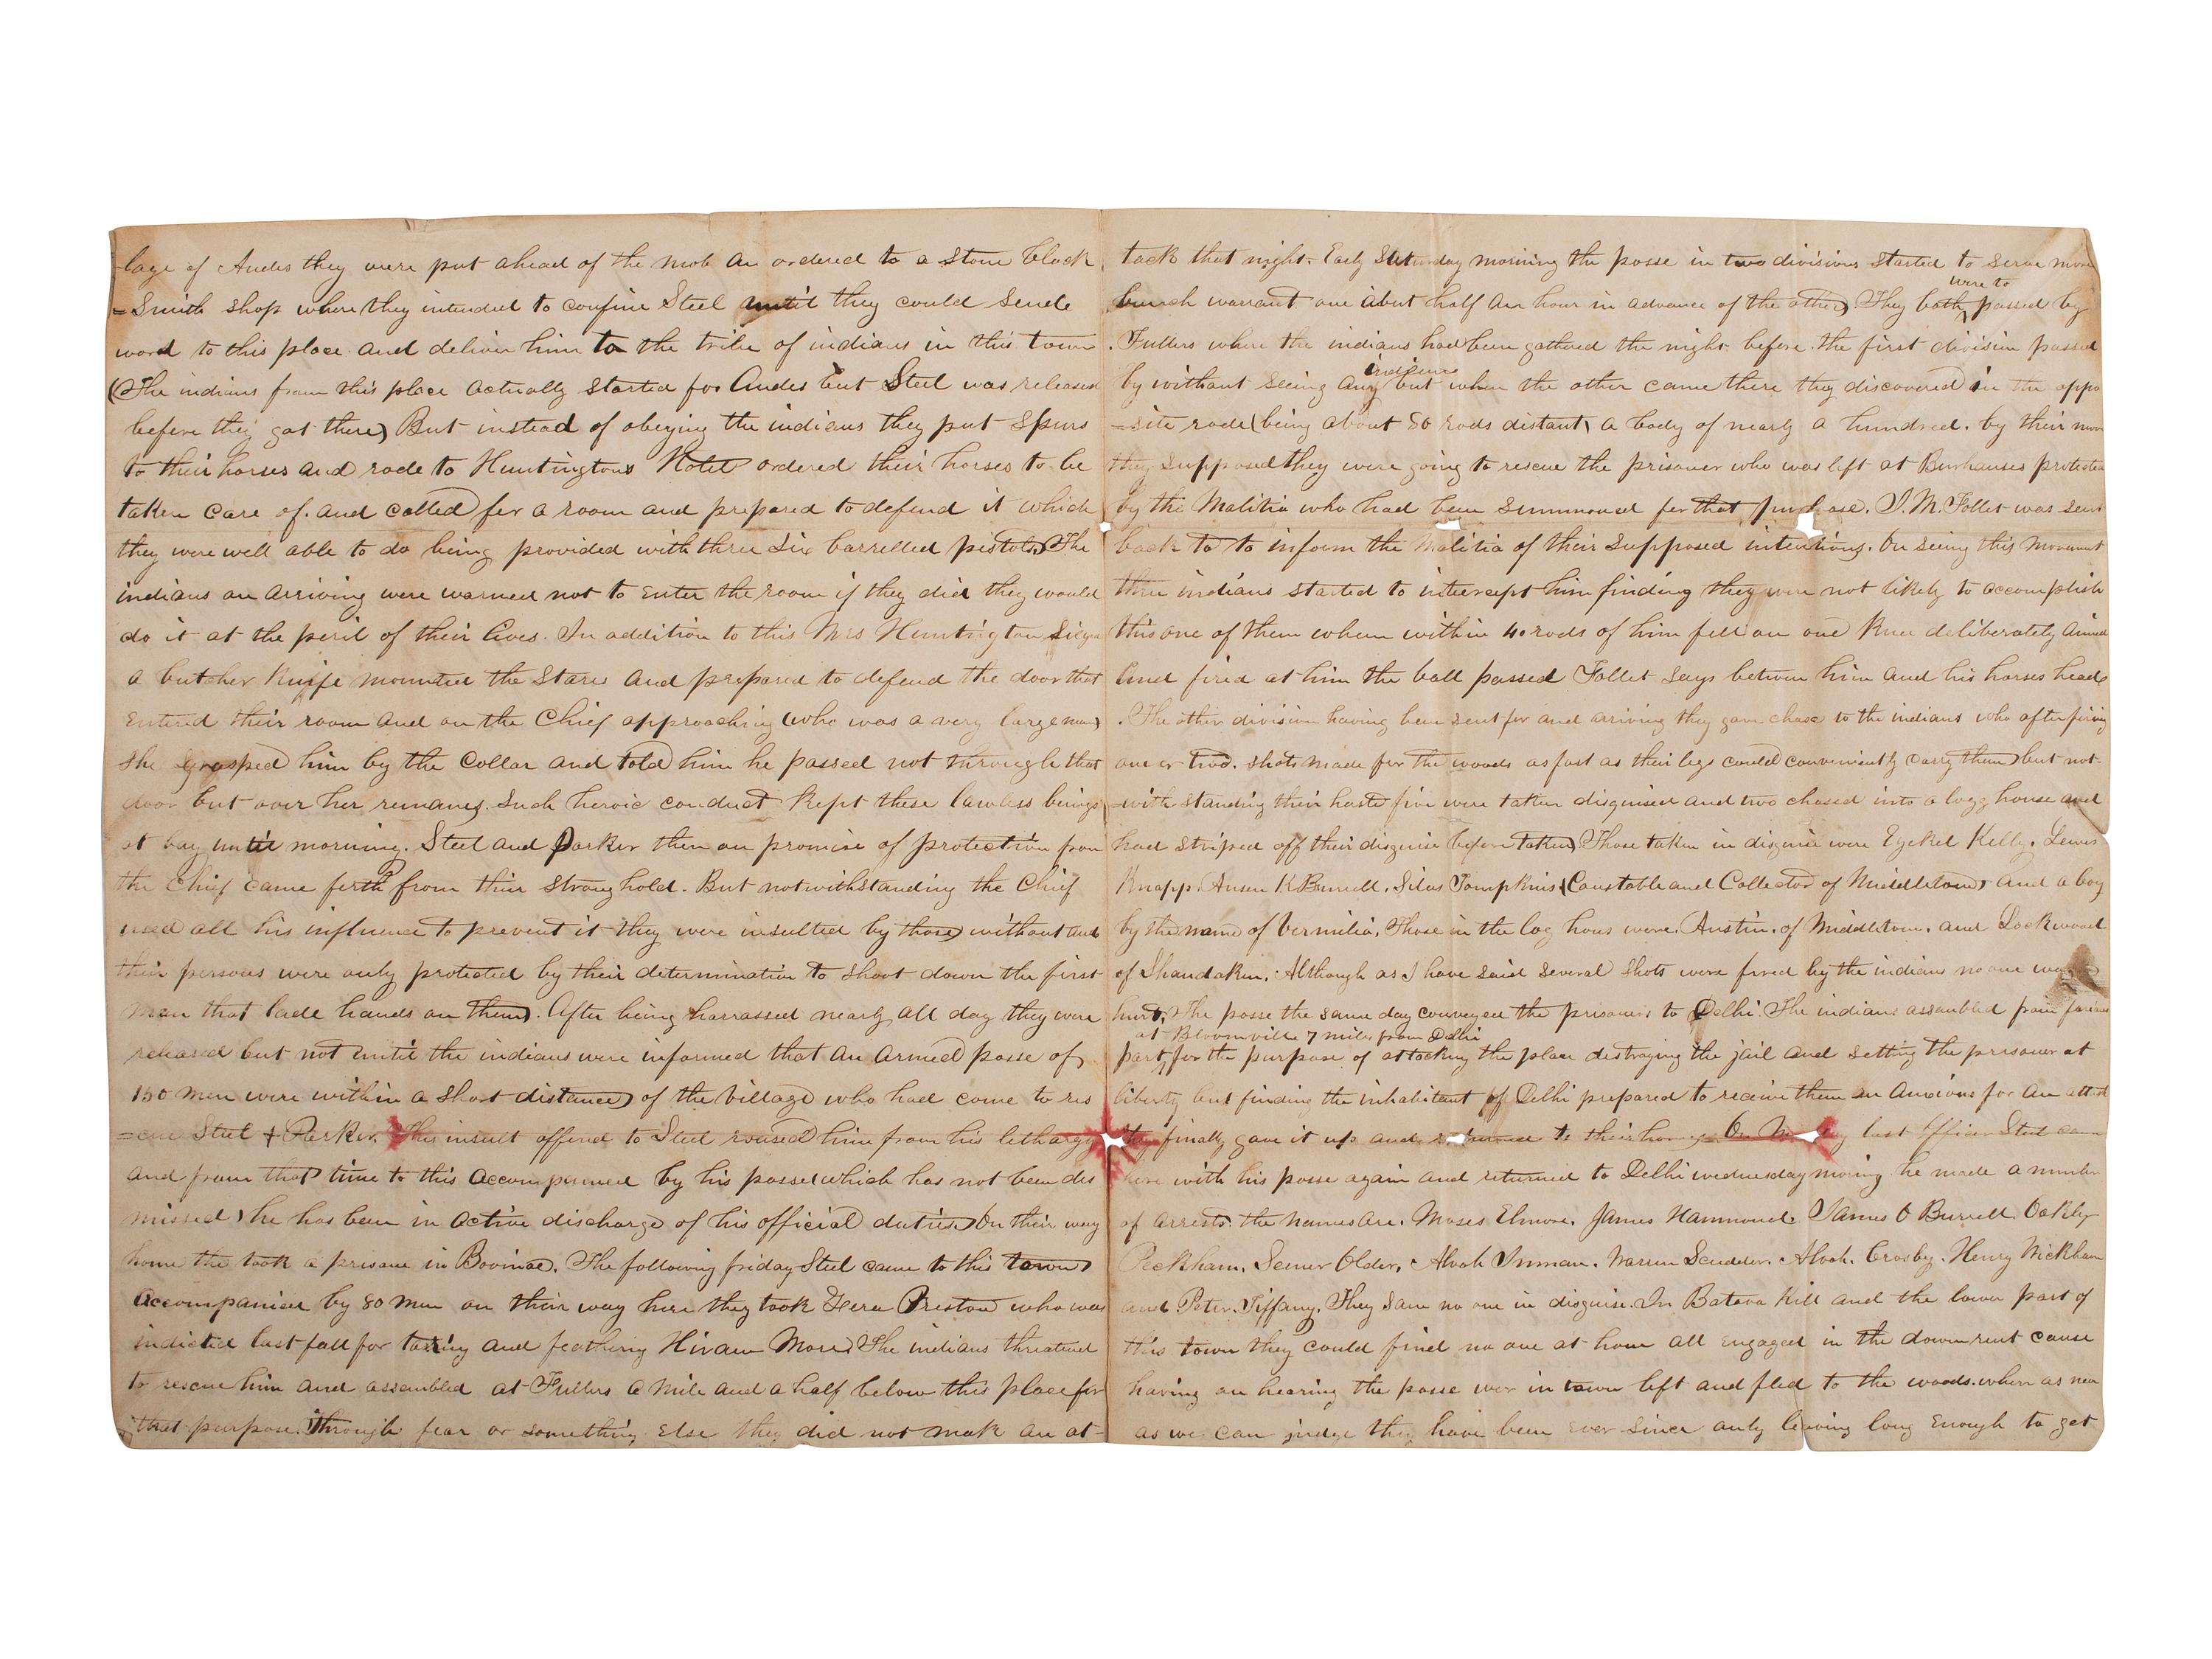 lage of Andes they were put ahead of the mob an ordered to a Stone Black
=Smith shop where they intended to confine Steel until they could sende
word to this place and deliver him to the tribe of indians in this town
(The indians from this place actually started for Andes but Steel was released
before they got there) But instead of obeying the indians they put spurs
to their horses and rode to Huntingtons Hotel ordered their horses to be
taken care of. and called for a room and prepared to defend it which
they were well able to do being provided with three Six barrelled pistols. The
indians on arriving were warned not to enter the room if they did they would
do it at the peril of their lives. In addition to this Mrs Huntington
a butcher Knife mounted the stares and prepared to defend the door that
entered their room and on the Chief approaching (who was a very large man)
she grasped him by the Collar and told him he passed not through that
door but over her remanes. Such heroic conduct kept these lawless beings
at bay until morning. Steel and Parker then on promise of protection from
the Chief came forth from their strong hold. But notwithstanding the Chief
used all his influence to prevent it they were insulted by those without and
their persons were only protected by their determination to shoot down the first
man that lade hands on them. After being harrassed nearly all day they were
released but not until the indians were informed that an armed posse of
150 men were within a short distance of the village who had come to res
=cue Steel & Parker. This insult offered to Steel roused him from his lethargy
and from that time to this accompanied by his posse (which has not been dis
missed) he has been in active discharge of his official duties. On their way
home the took a prisone in Bovina. The following friday Steel came to this town
accompanied by 80 men on their way here they took Preston who was
indicted last fall for taring and feathering Hiram More. The indians threatend
to rescue him and assembled at Fullers a mile and a half below this place for
that purpose. through fear or something else they did not mak an at-
tack that night. Early Saturday morning the posse in two divisions started to serve more
warrant one about half an hour in advance of the other. They both were to passed by
Fullers where the indians had been gathered the night before. the first division passed
by without seeing any indians but when the other came there they discovered in the oppo
=site rode (being about 80 rods distant) a body of nearly a hundred. by their move
they supposed they were going to rescue the prisoner who was left at Burhanses protected
by the Malitia who had been summoned for that purpose. I. M. Follet was sent
back to to inform the Malitia of their supposed intentions. On seeing this movement
three indians started to intercept him finding they were not likely to accomplish
this one of them when within 40 rods of him fell on one knee deliberately aimed
and fired at him the ball passed Follet says between him and his horses head
. The other division having been sent for and arriving they gave chase to the indians who after firing
one or two. shots made for the woods as fast as their legs could conveniently carry them but not-
=with standing their haste five were taken disguised and two chased into a logg house and
had striped off their disguise before taken. Those taken in disguise were Ezekel Kelly. Lewis
Knapp. Anson K Burrell. Silas Tompkins (Constable and Collector of Middletown) and a boy
by the name of Vermilia. Those in the log hous were. Austin. of Middletown. and Lockwood
of Shandakin. Although as I have said several shots were fired by the indians no one was
hurt. The posse the same day conveyed the prisoners to Delhi. The indians assembled from
at Bloomville 7 miles from Delhi
part for the purpose of attacking the place destroying the jail and setting the prisoner at
liberty but finding the inhabitant of Delhi prepared to receive them an anxious for an attack
they finally gave it up and returned to their homes. On last officer Steel came
here with his posse again and returned to Delhi wednesday moring he made a number
of arrests. the names are. Moses Elmore. James Hammond. James O Burrell. Oakley
Peckham. Older. Alvah Inman. Warren Scudder. Alvah. Crosby. Henry Wickham
and Peter. Tiffany. They saw no one in disguise. In Batava kill and the lower part of
this town they could find no one at home all engaged in the down rent cause
having on hearing the posse wer in town left and fled to the woods. where as near
as we can judge they have been ever since only leaving long enough to get